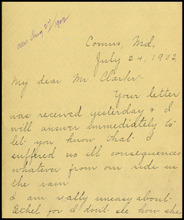 Comus, Md.
July 24, 1902
My dear Mr. Clarke:
Your letter
was received yesterday & I
will answer immediately to
let you know that I
suffered no ill consequences
whatever from our ride in
the rain
I am really uneasy about
Ethel for I don't see how she